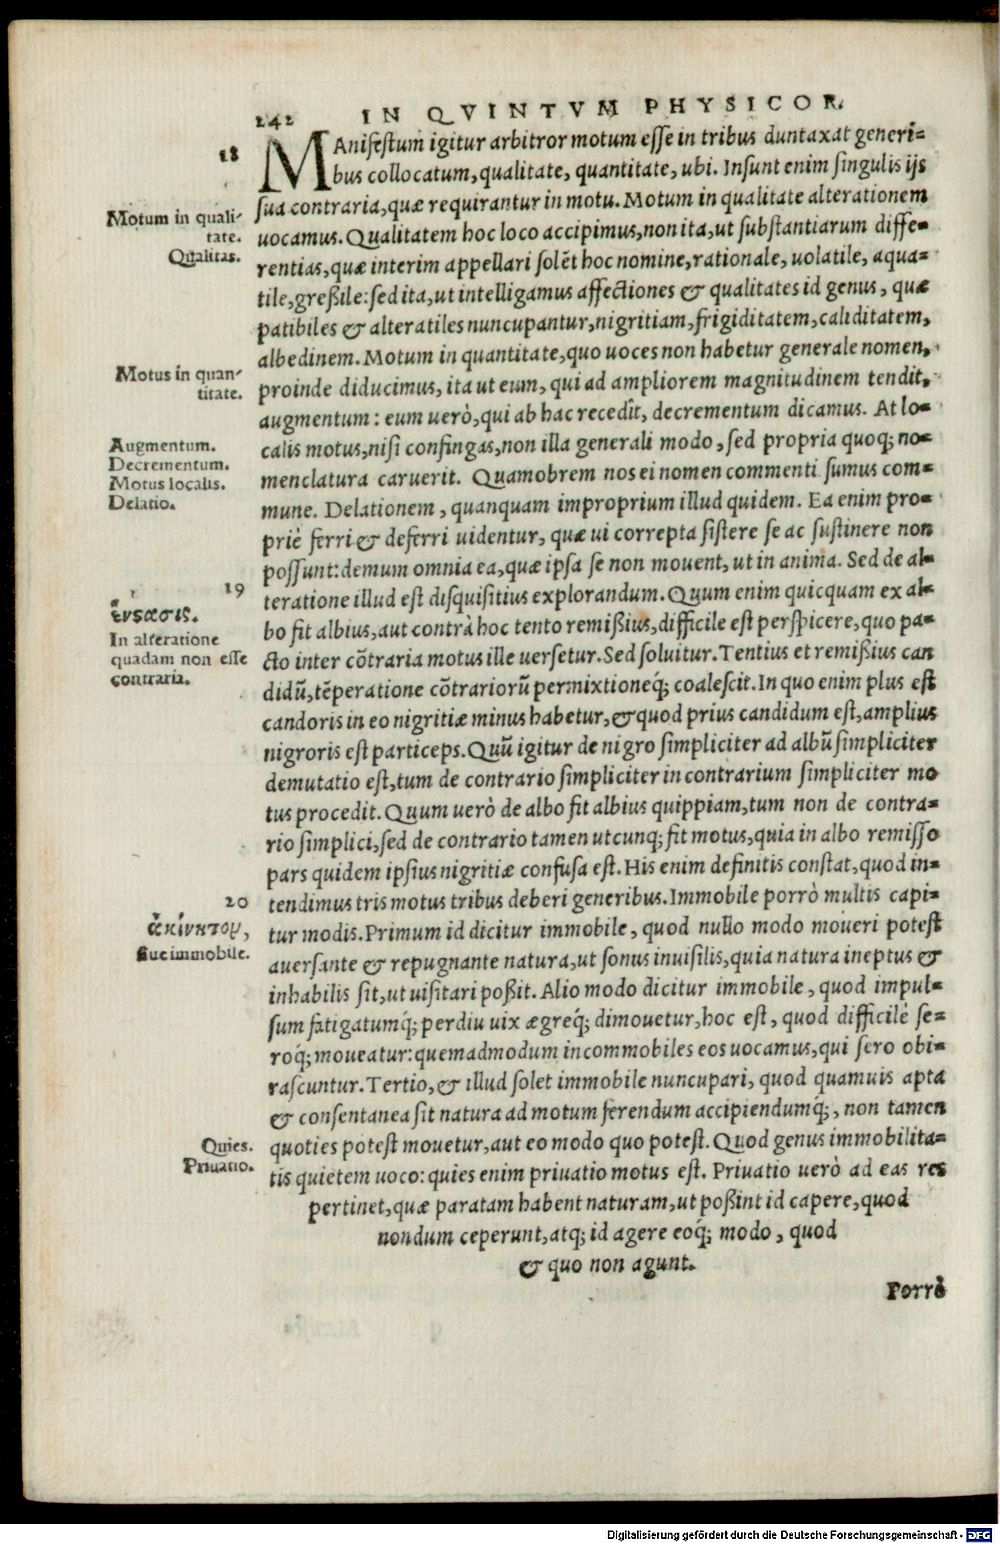 242 IN QVINTVM PHYSICOR.
18
MAnifestum igitur arbitror motum esse in tribus duntaxat generi-
bus collocatum, qualitate, quantitate, ubi. Insunt enim singulis ijs
sua contraria, quæ requirantur in motu. Motum in qualitate alterationem
Motum in quali-
tate.
uocamus. Qualitatem hoc loco accipimus, non ita, ut substantiarum diffe-
Qualitas.
rentias, quæ interim appellari solẽt hoc nomine, rationale, uolatile, aqua-
tile, greßile: sed ita, ut intelligamus affectiones & qualitates id genus, quæ
patibiles & alteratiles nuncupantur, nigritiam, frigiditatem, caliditatem,
albedinem. Motum in quantitate, quo uoces non habetur generale nomen,
Motus in quan-
titate.
proinde diducimus, ita ut eum, qui ad ampliorem magnitudinem tendit,
augmentum: eum uerò, qui ab hac recedit, decrementum dicamus. At lo-
Augmentum.
Decrementum.
Motus localis.
Delatio.
calis motus, nisi confingas, non illa generali modo, sed propria quoq; no-
menclatura caruerit. Quamobrem nos ei nomen commenti sumus com-
mune. Delationem, quanquam improprium illud quidem. Ea enim pro-
priè ferri & deferri uidentur, quæ ui correpta sistere se ac sustinere non
possunt: demum omnia ea, quæ ipsa se non mouent, ut in anima. Sed de al-
19
ἔνστασις.
In alteratione
quadam non esse
contraria.
teratione illud est disquisitius explorandum. Quum enim quicquam ex al-
bo fit albius, aut contrà hoc tento remißius, difficile est perspicere, quo pa-
cto inter cõtraria motus ille uersetur. Sed soluitur. Tentius et remißius can
didũ, tẽperatione cõtrariorũ permixtioneq́; coalescit. In quo enim plus est
candoris in eo nigritiæ minus habetur, & quod prius candidum est, amplius
nigroris est particeps. Quũ igitur de nigro simpliciter ad albũ simpliciter
demutatio est, tum de contrario simpliciter in contrarium simpliciter mo
tus procedit. Quum uerò de albo fit albius quippiam, tum non de contra-
rio simplici, sed de contrario tamen utcunq; fit motus, quia in albo remisso
pars quidem ipsius nigritiæ confusa est. His enim definitis constat, quod in-
20
ἀκίνητον,
siue immobile.
tendimus tris motus tribus deberi generibus. Immobile porrò multis capi-
tur modis. Primum id dicitur immobile, quod nullo modo moueri potest
auersante & repugnante natura, ut sonus inuisilis, quia natura ineptus &
inhabilis sit, ut uisitari poßit. Alio modo dicitur immobile, quod impul-
sum fatigatumq́; perdiu uix ægreq́; dimouetur, hoc est, quod difficilè se-
roq́; moueatur: quemadmodum incommobiles eos uocamus, qui sero obi-
rascuntur. Tertio, & illud solet immobile nuncupari, quod quamuis apta
& consentanea sit natura ad motum ferendum accipiendumq́;, non tamen
Quies.
Priuatio.
quoties potest mouetur, aut eo modo quo potest. Quod genus immobilita-
tis quietem uoco: quies enim priuatio motus est. Priuatio uerò ad eas res
pertinet, quæ paratam habent naturam, ut poßint id capere, quod
nondum ceperunt, atq; id agere eoq́; modo, quod
& quo non agunt.
Porrò
Digitalisierung gefördert durch die Deutsche Forschungsgemeinschaft - DFG